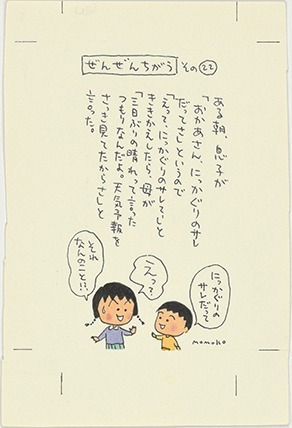 ぜんぜんちがう その㉒
ある朝、息子が
「おかあさん、にっかぐりのサレ
だってさ」というので
「えっ?、にっかぐりのサレ?」と
ききかえしたら、母が
「三日ぶりの晴れって言った
つもりなんだよ。天気予報を
さっき見てたからさ」と
言った。
にっかぐりの
サレだって
えっ?
それ
なんのこと!?
momoko